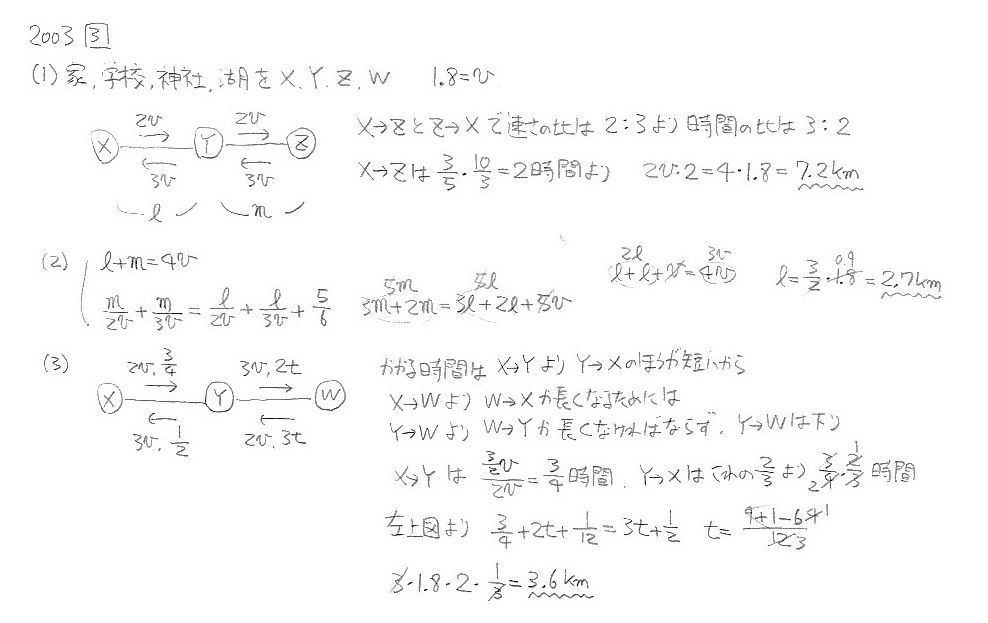 2003 3
(1) 家,学校,神社,湖を X, Y, Z, W 1.8=v
X 2v 3v Y 2v 3v Z
l m
X→ZとZ→Xで速さの比は 2:3より時間の比は 3:2
X→Zは 3/5・10/3=2時間より 2v・2=4・1.8=7.2km
(2) l+m=4v
m/2v+m/3v=l/2v+l/3v+5/6
5m 5l
3m+2m=3l+2l+5v
2l 3v
l+l+v=4v
l=3/2・1.8=2.7km
0.9
(3) X 2v, 3/4 3v, 1/2 Y 3v, 2t 2v, 3t W
かかる時間は X→Yより Y→Xのほうが短いから
X→Wより W→Xが長くなるためには
Y→Wより W→Yが長くなければならず, Y→Wは下り
X→Yは (3/2 v)/2v=3/4時間, Y→Xはこれの2/3より 3/4・2/3 時間
2 1
左上図より 3/4+2t+1/12=3t+1/2 t=(9+1-6)/12
4 1 3
3・1.8・2・1/3=3.6km